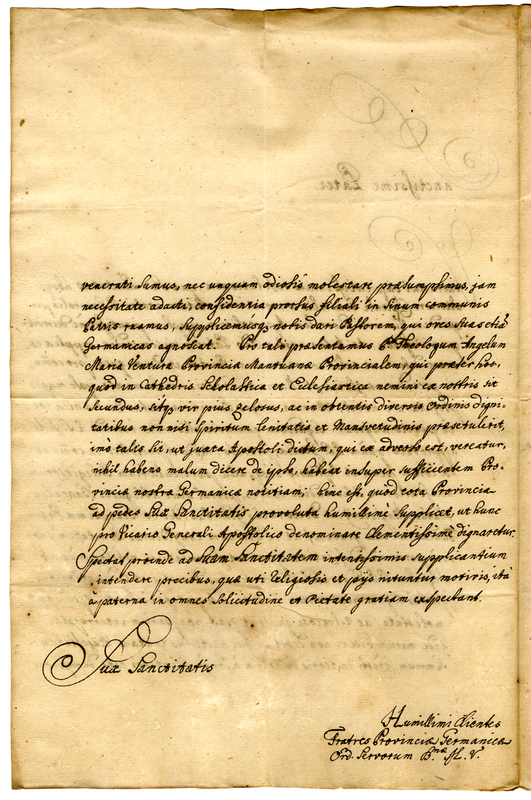 venerati sumus, nec unquam odiosis molestare præsumpsimus, jam
necessitate adacti, confidentia prorsus filiali in sinum communis
Patris ruamus, supplicemusq, nobis dari Pastorem, qui oves suas etiã
Germanicas agnoscat. Pro tali præsentamus P. Theologum Angelum
Maria Ventura Provinciæ Mantuanæ Provincialem, qui præter hoc,
quod in Cathedris Scholastica et Ecclesiastica nemini ex nostris sit
secundus, sitq, vir pius, Zelosus, ac in obtentis diversis Ordinis digni-
tatibus nonnisi Spiritum lenitatis et Mansvetudinis præsetulerit,
imò talis sit, ut juxta Apostoli dictum, qui ex adverso est, vereatur,
nihil habens malum dicere de ipso, habeat insuper sufficientem Pro-
vinciæ nostræ Germanicæ notitiam; hinc est, quod tota Provincia
ad pedes Suæ Sanctitatis provoluta humillime supplicet, ut hunc
pro Vicario Generali Apostolico denominare Clementissimè dignaretur.
Spectat proinde ad Suam Sanctitatem intentissimis supplicantium
intendere precibus, quæ uti Religiosis et pijs nituntur motivis, ità
à paterna in omnes Solicitudine et Pietate gratiam exspectant.
Suæ Sanctitatis
Humillimi Clientes
Fratres Provinciæ Germanicæ
Ord. Servorum B.næ M. V.